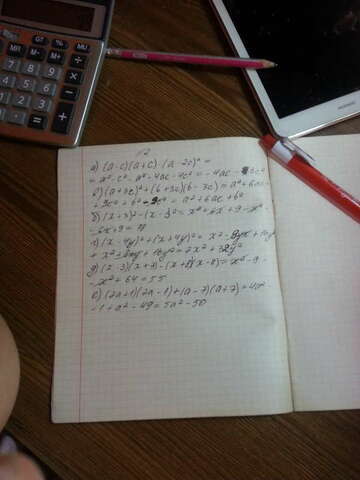 N2
а) (a-c)(a+c)-(a-2c)² =
= a²-c²-a²-4ac-4c² = -4ac-
б) (a+3c)²+(b+3c)(b-3c)= a²+6ac+
+9c²+b²-9c² = a²+6ac+b²
в) (x+3)²-(x-3)²= x²+6x+9-x²-
-6x+9= 18
г) (x-4y)²+(x+4y)²= x²-8yx+16y²
+x²+8xy+16y²=2x²+32y²
д) (x-3)(x+3)-(x+8)(x-8)=x²-9-
-x²+64=55
е) (2a+1)(2a-1)+(a-7)(a+7)=4a²-
-1+a²-49=5a²-50